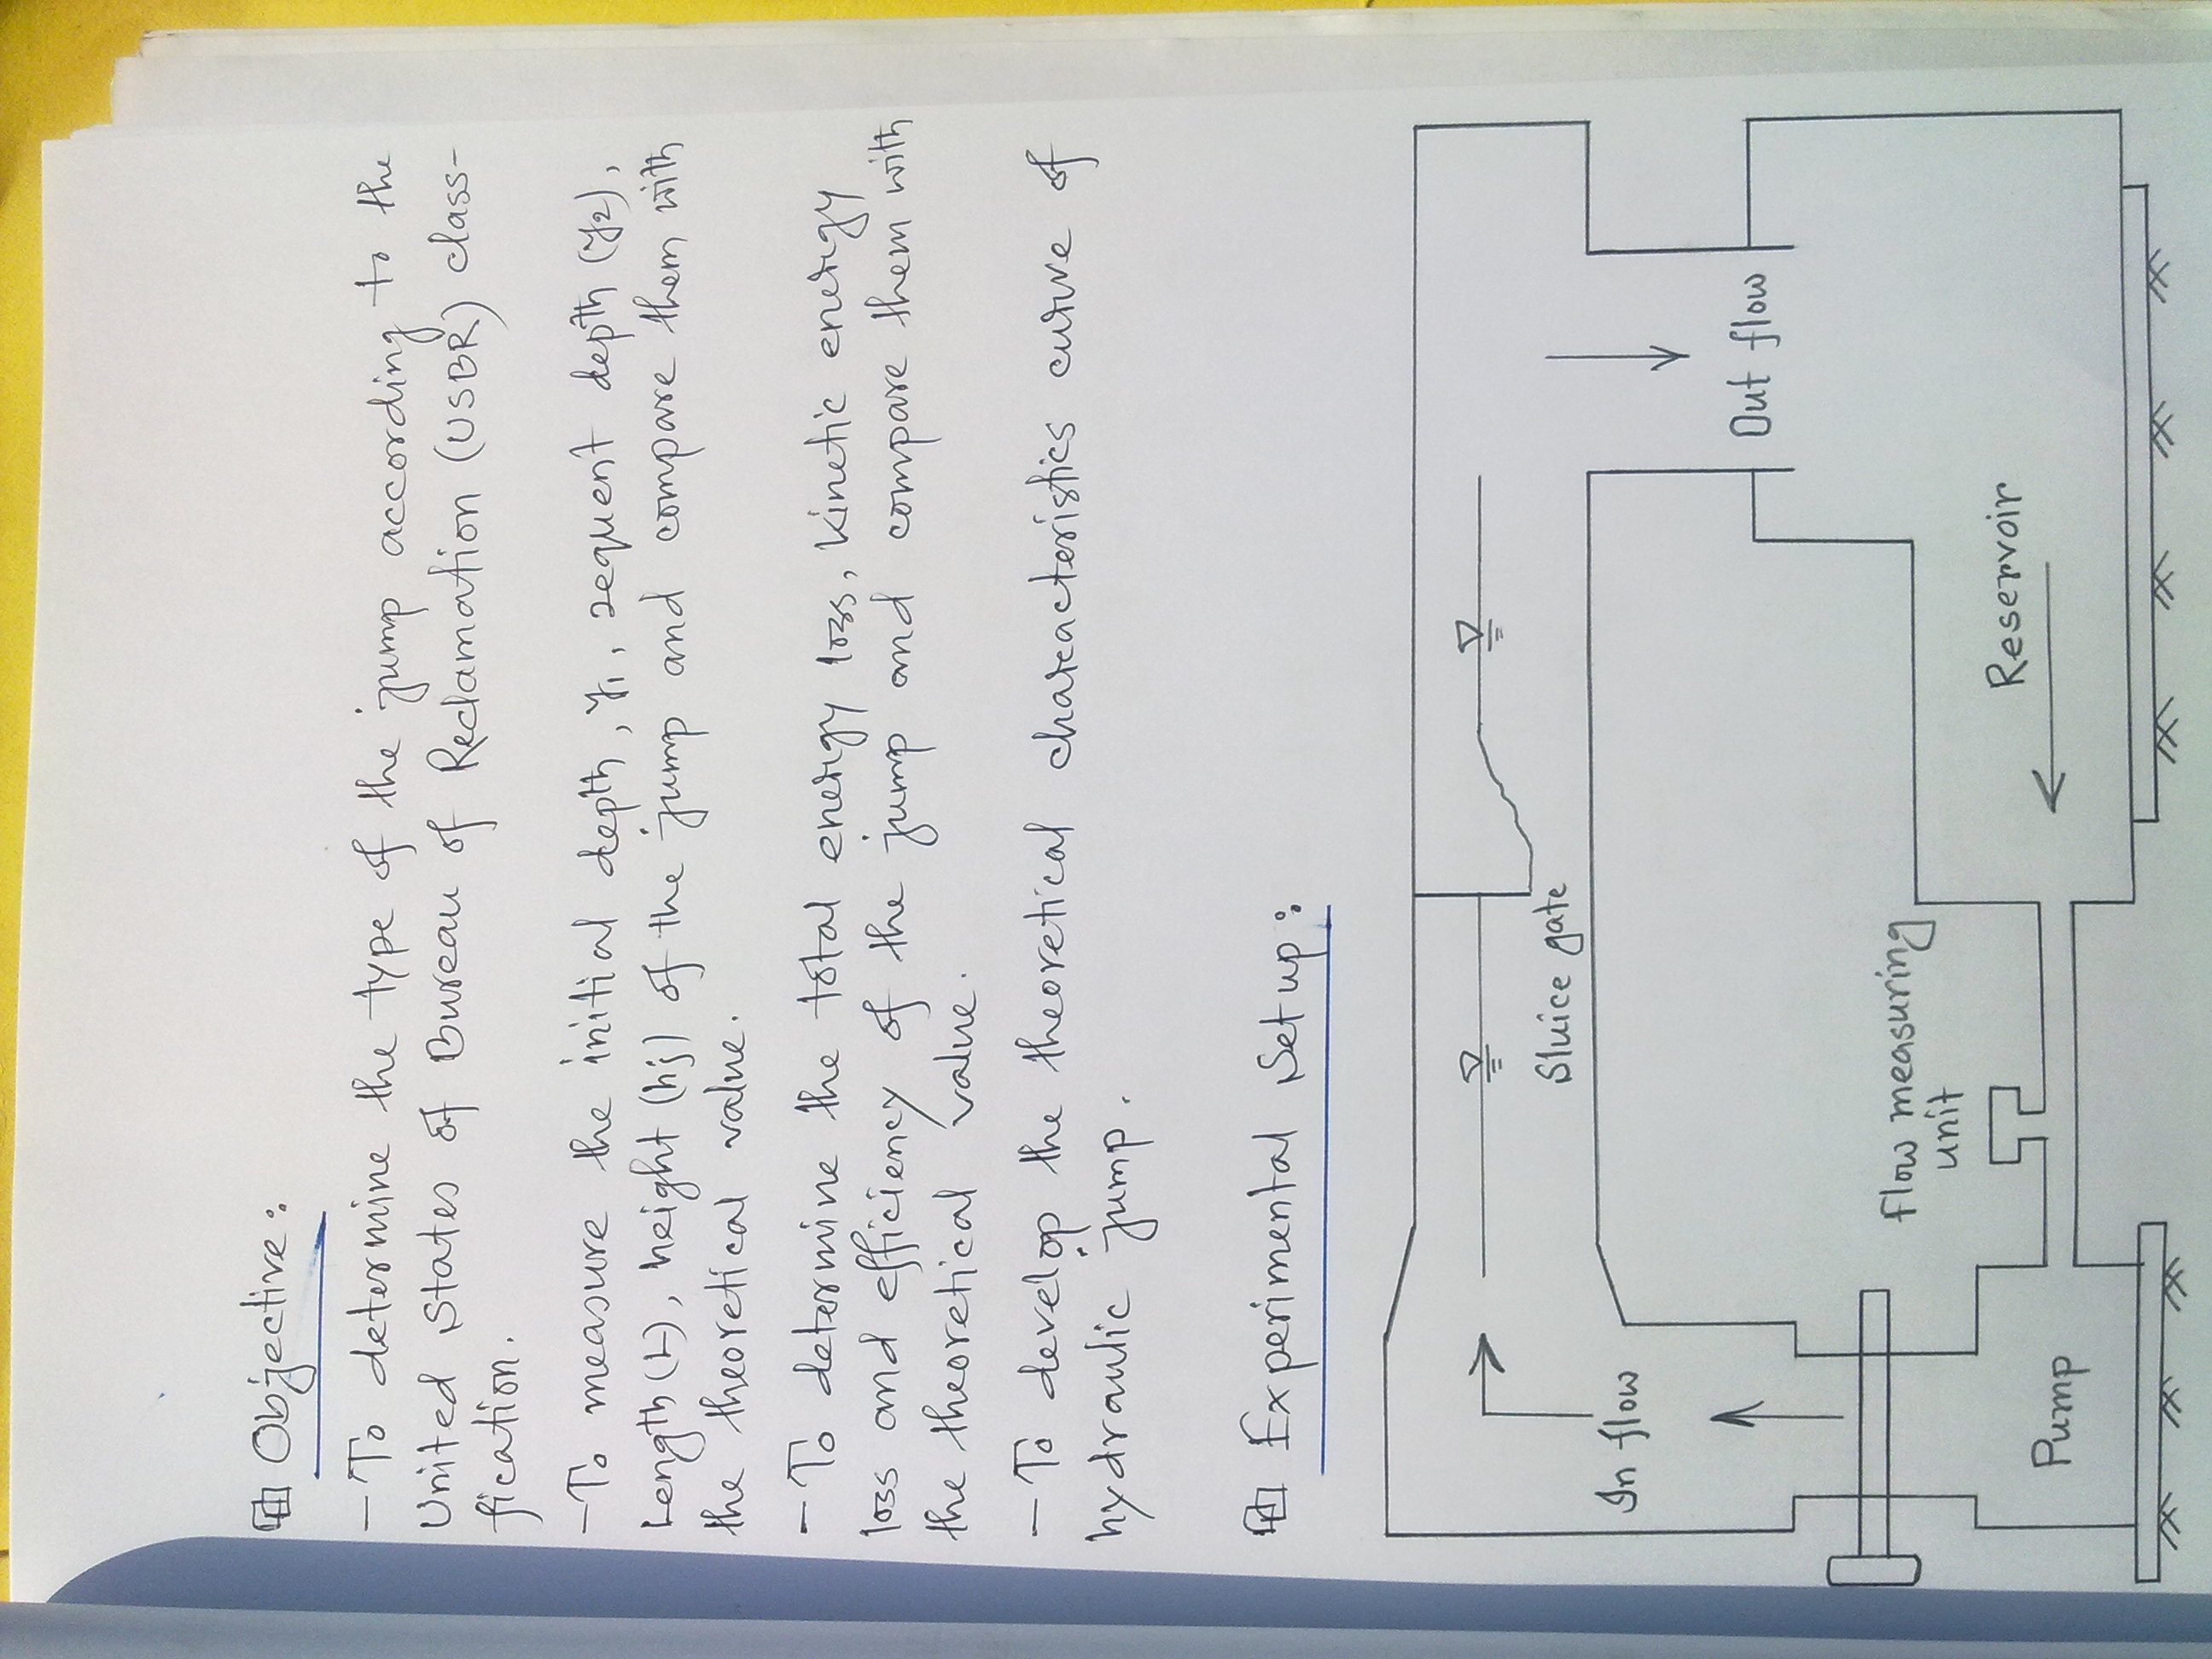 Objective:
- To determine the type of the jump according to the
United States of Bureau of Reclamation (USBR) class-
fication.
- To measure the initial depth, y1, sequent depth (y2),
Length (L), height (hj) of the jump and compare them with
the theoretical value.
- To determine the total energy loss, kinetic energy
loss and efficiency of the jump and compare them with
the theoretical value.
- To develop the theoretical chareacteristics curve of
hydraulic jump.
Experimental Setup:
Sluice gate
In flow
Out flow
Flow measuring
unit
Reservoir
Pump